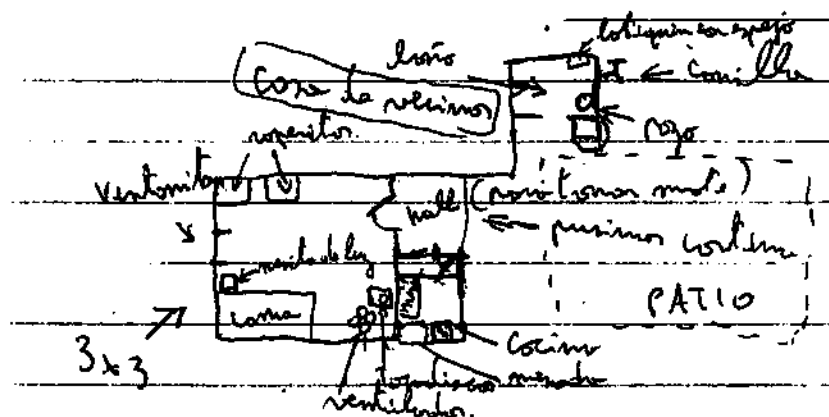 botiquin con espejo
baño
canilla
Casa de vecinos
pozo
roperitos
ventanita
hall (para tomar mate)
pusimos cortina
mesita de luz
PATIO
cama
3x3
cocina
tocadiscos
ventilador